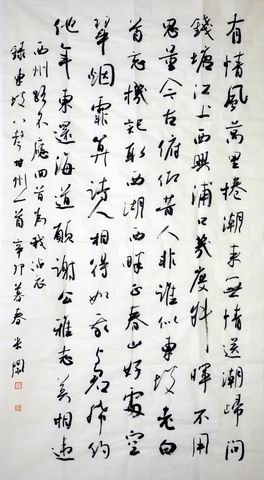 有情風萬里捲潮来無情送潮歸問
錢塘江上西興浦口幾度斜暉不用
思量今古俯仰昔人非誰似東坡老白
首忘機記取西湖西畔正春山好處空
翠烟霏算詩人相得如我與君稀約
他年東還海道願謝公雅志莫相違
西州路不應回首為我沾衣
錄東坡八聲甘州一首辛卯暮春